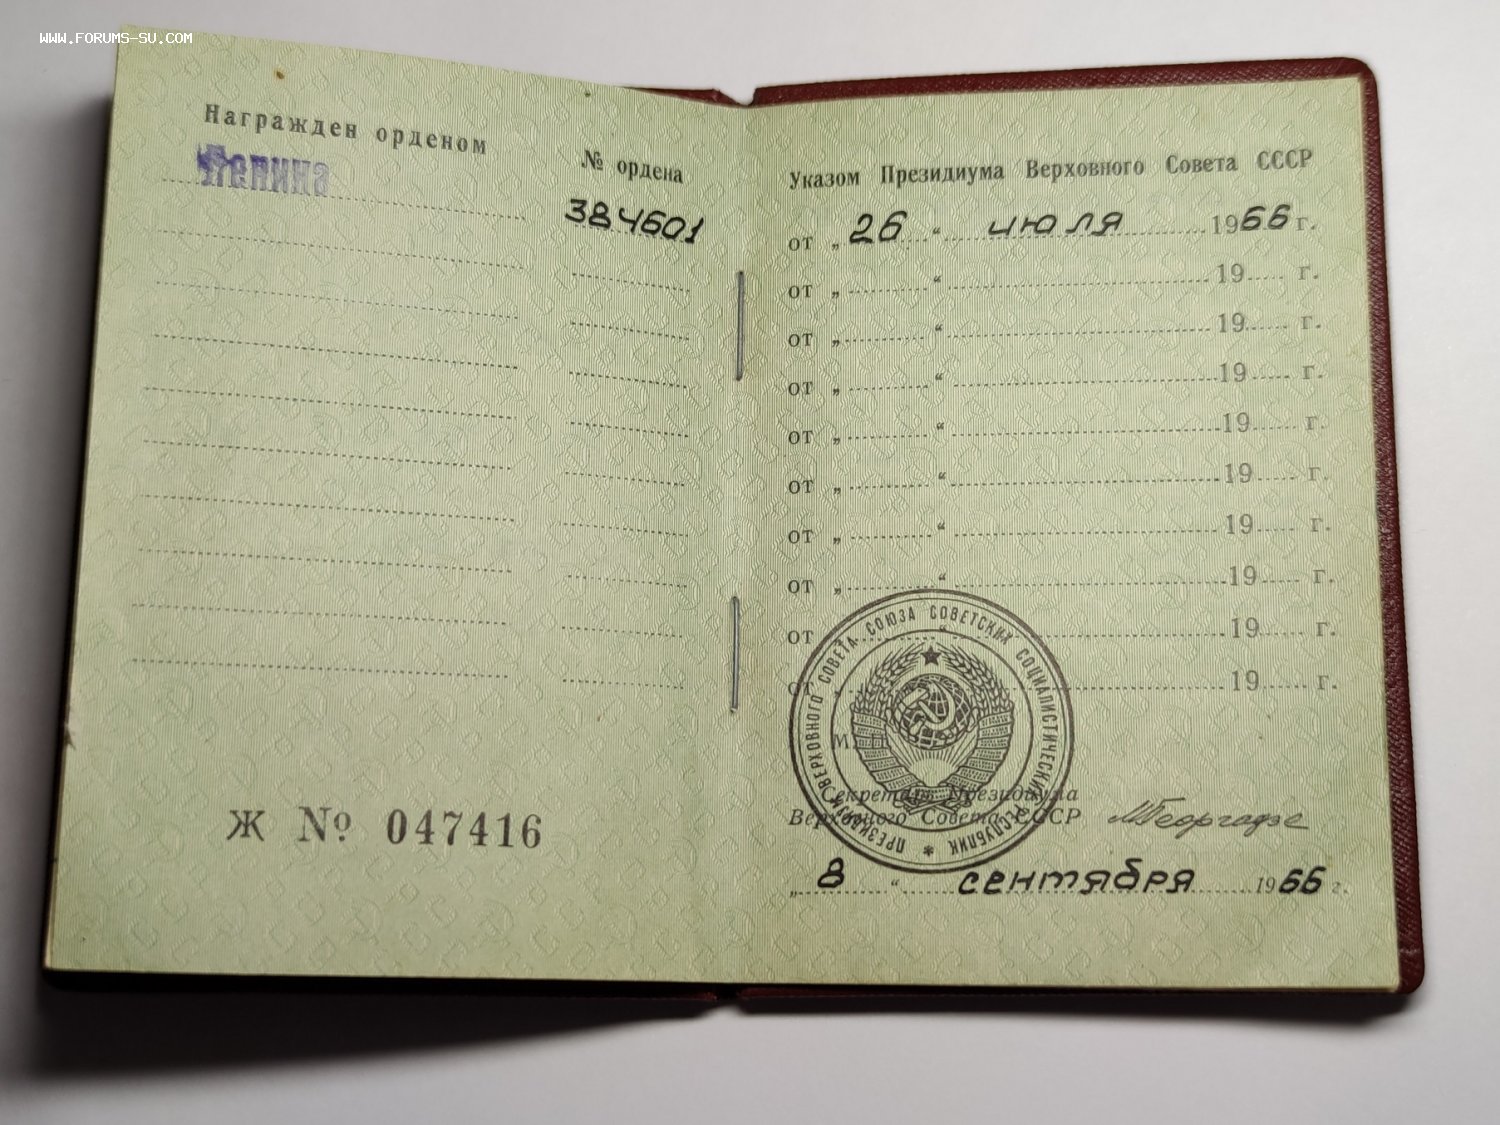 WWW.FORUMS-SU.COM
Награжден орденом
Ленина
№ ордена
384601
Ж № 047416
Указом Президиума Верховного Совета СССР
от „ 26 “ июля 1966 г.
от „ “ 19 г.
от „ “ 19 г.
от „ “ 19 г.
от „ “ 19 г.
от „ “ 19 г.
от „ “ 19 г.
от „ “ 19 г.
от „ “ 19 г.
от „ “ 19 г.
М. П.
ПРЕЗИДИУМ ВЕРХОВНОГО СОВЕТА СОЮЗА СОВЕТСКИХ СОЦИАЛИСТИЧЕСКИХ РЕСПУБЛИК
Секретарь Президиума
Верховного Совета СССР МГеоргадзе
„ 8 “ сентября 1966 г.